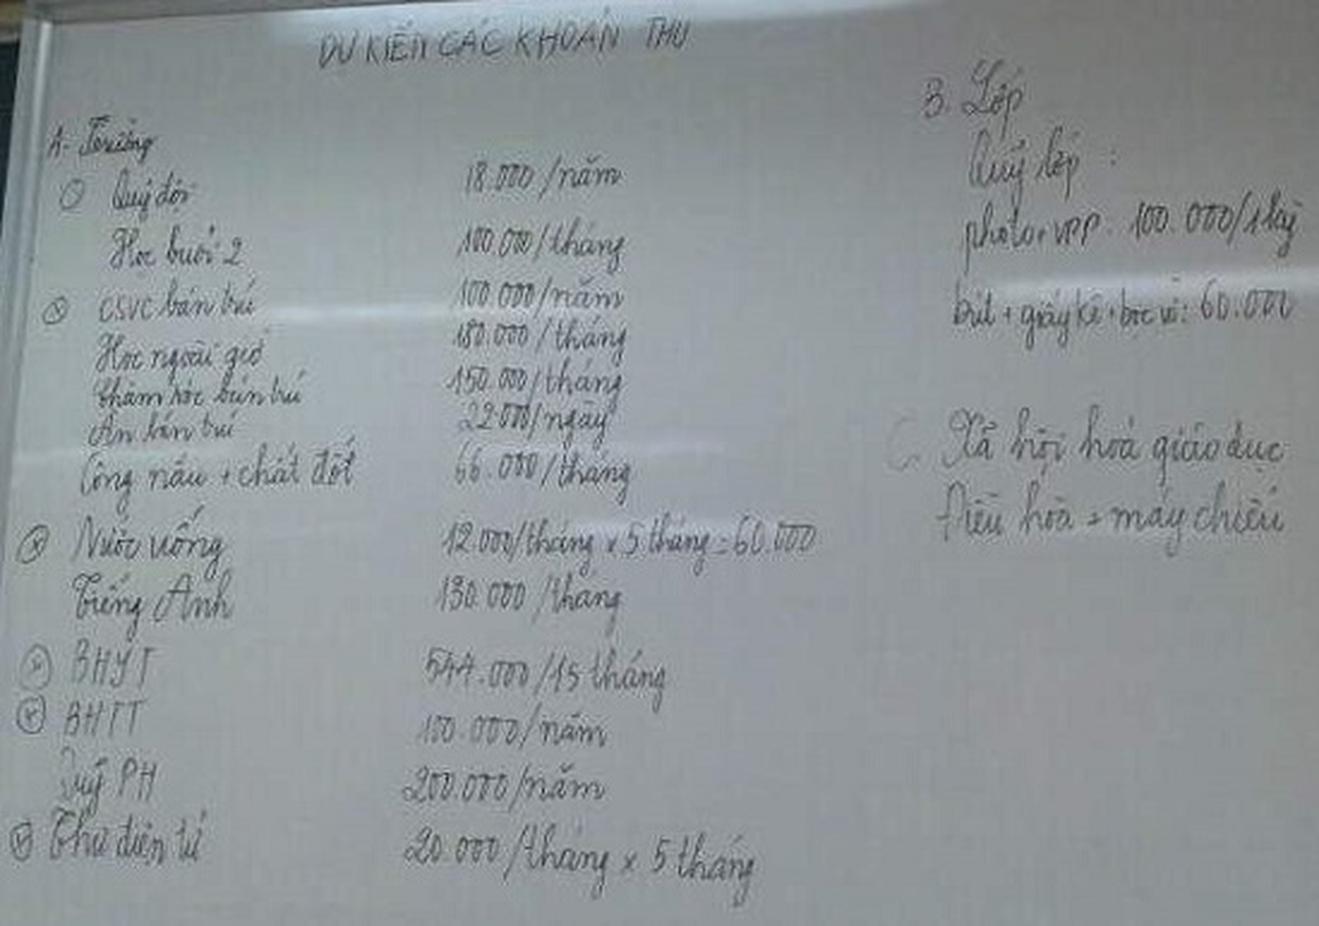 DỰ KIẾN CÁC KHOẢN THU
A- Trường
Quỹ đội 18.000/năm
Học buổi 2 100.000/tháng
CSVC bán trú 100.000/năm
Học ngoài giờ 180.000/tháng
Chăm sóc bán trú 150.000/tháng
Ăn bán trú 22.000/ngày
Công nấu + chất đốt 66.000/tháng
Nước uống 12.000/tháng x 5 tháng = 60.000
Tiếng Anh 130.000/tháng
BHYT 544.000/15 tháng
BHTT 100.000/năm
Quỹ PH 200.000/năm
Thư điện tử 20.000/tháng x 5 tháng
B. Lớp
Quỹ lớp :
photo + VPP. 100.000/1 kỳ
bút + giấy kê + bọc vở: 60.000
C. Xã hội hoá giáo dục
Điều hòa + máy chiếu